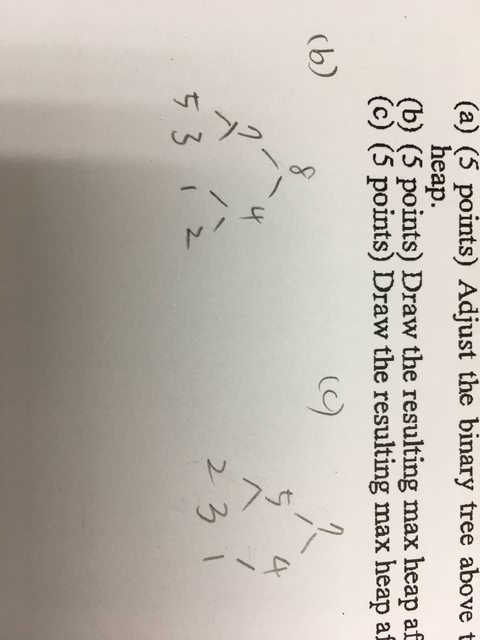 (a) (5 points) Adjust the binary tree above t
heap.
(b) (5 points) Draw the resulting max heap af
(c) (5 points) Draw the resulting max heap af
(b)
8
7 4
5 3 1 2
(c)
7
5 4
2 3 1